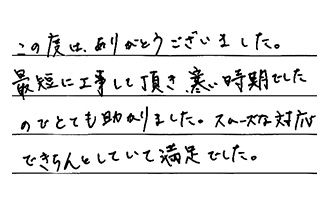 この度は、ありがとうございました。
最短に工事して頂き、寒い時期でした
のでとても助かりました。スムーズな対応
できちんとしていて満足でした。